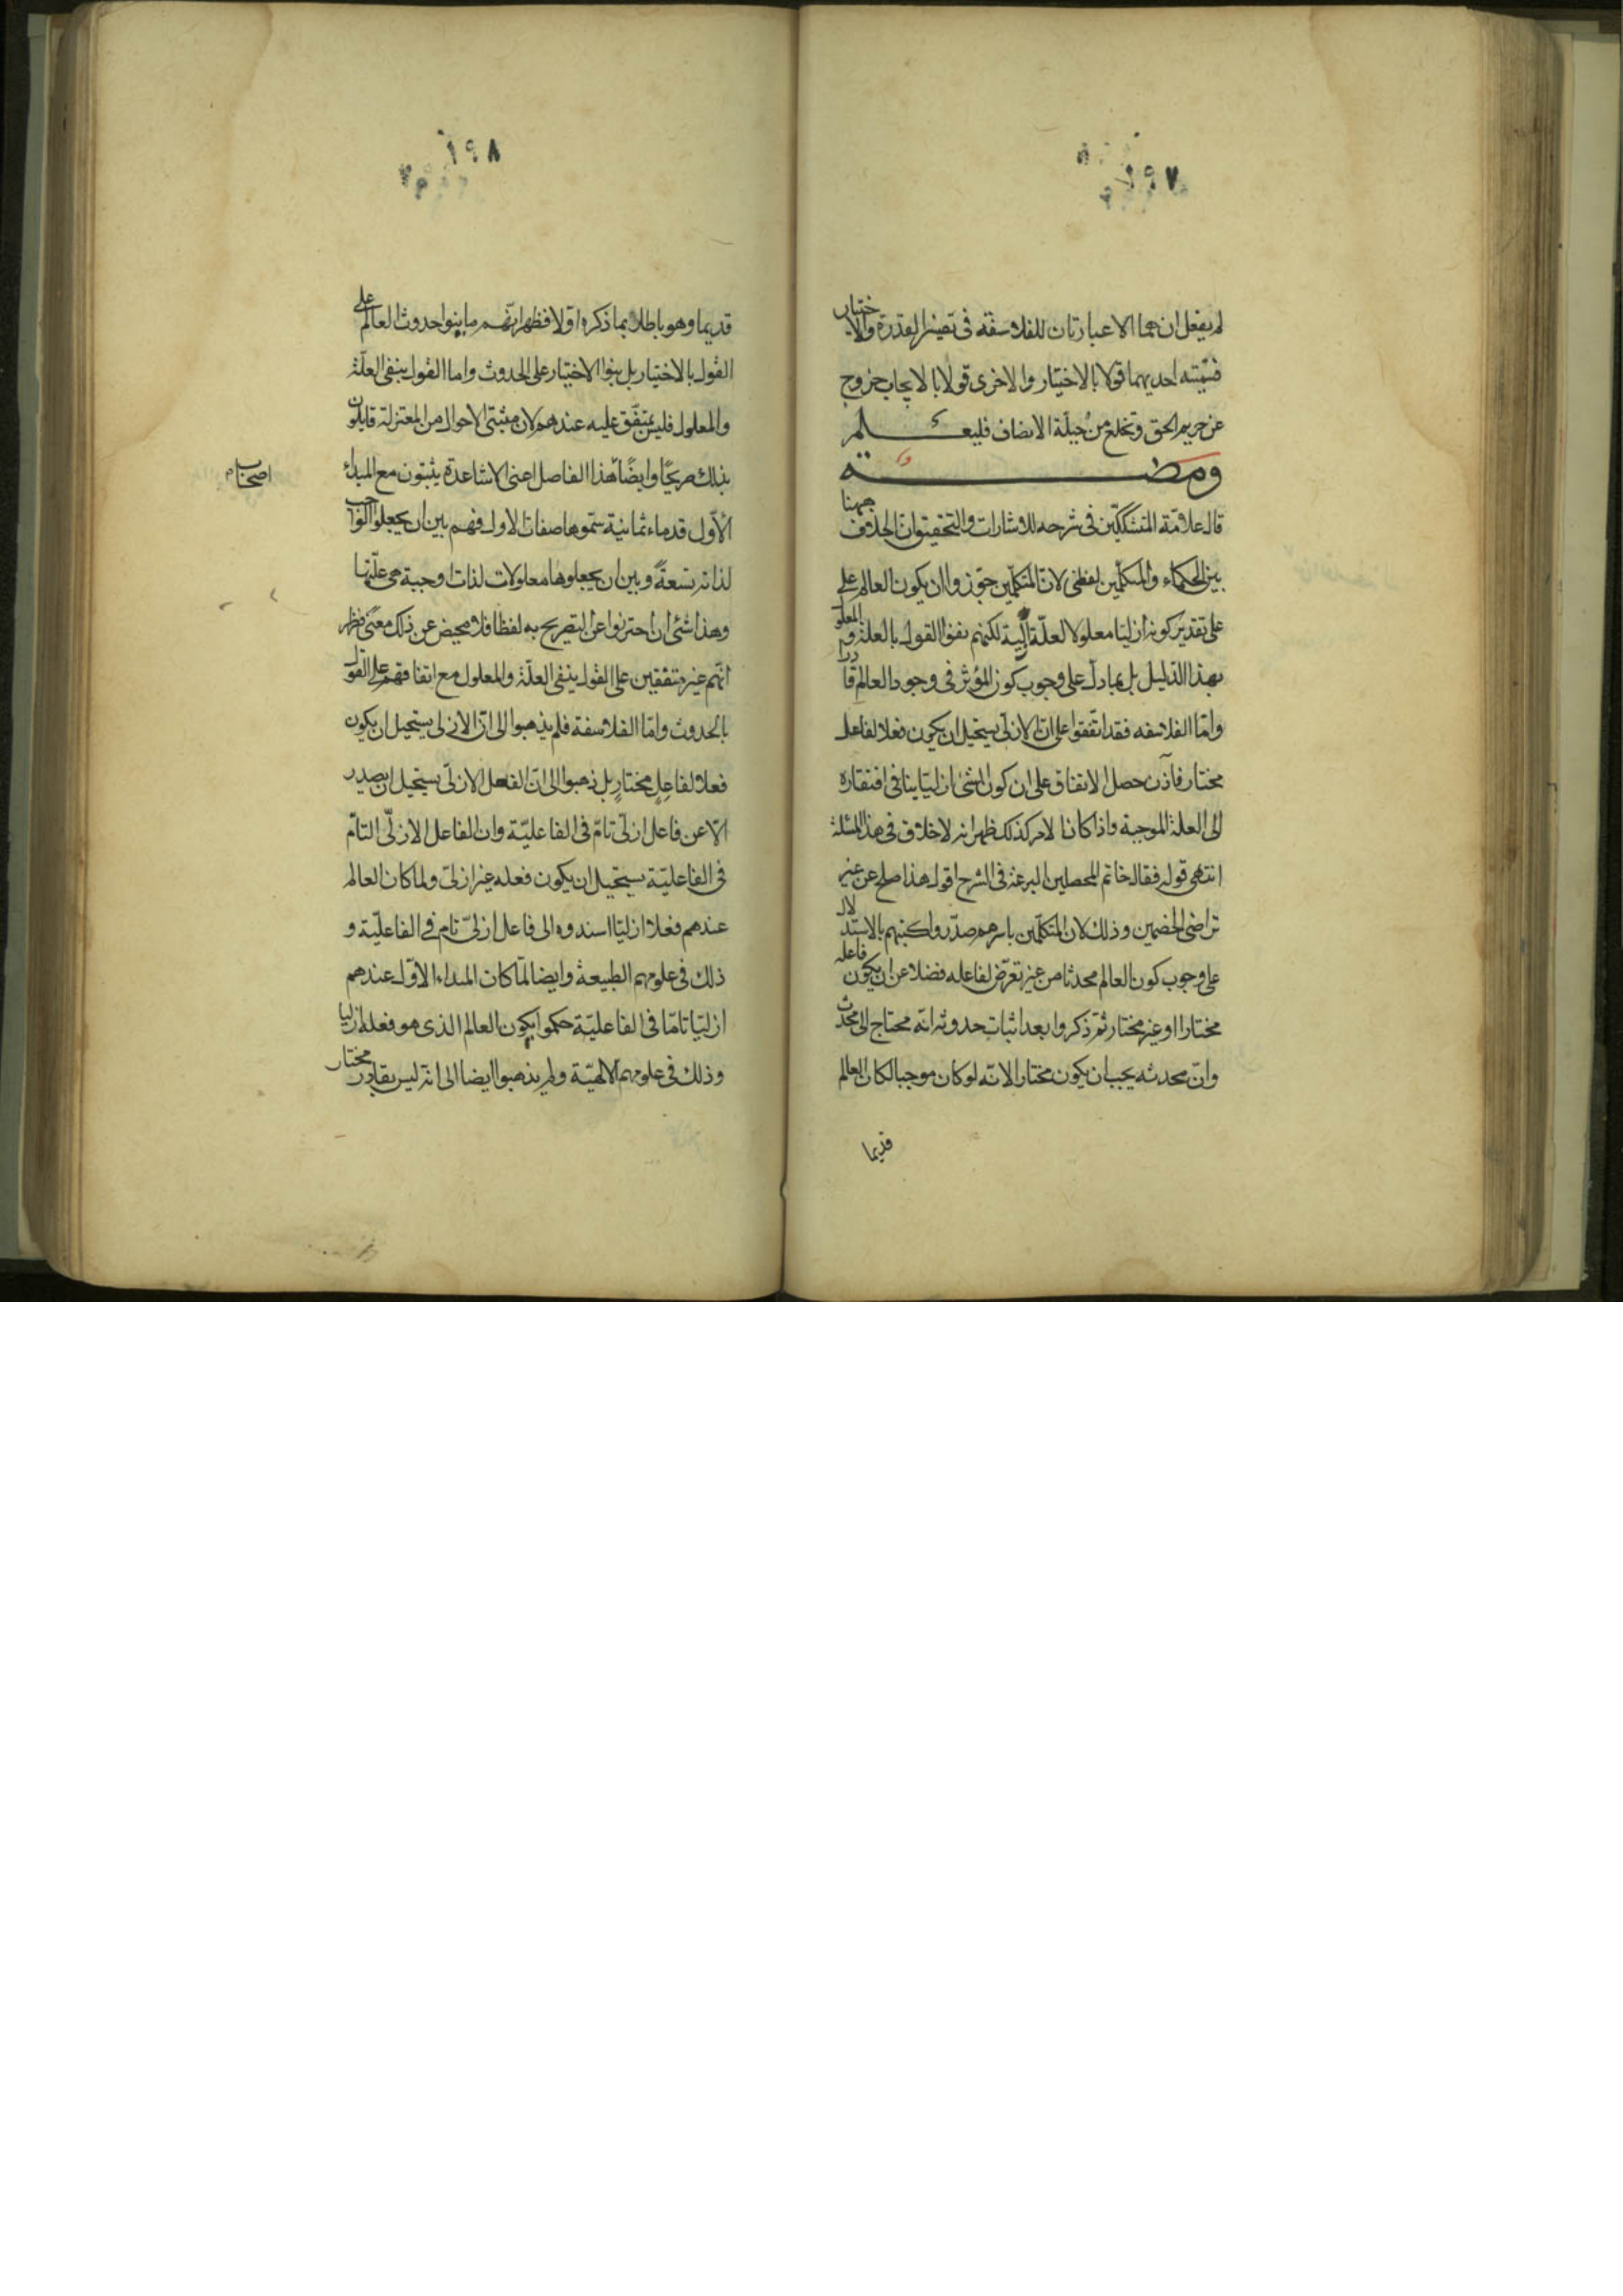 ١٩٧
لم يفعل ان هما الا عبارتان للفلاسفة فى تفسير القدرة والاختيار
فتسميته احديهما قولا بالاختيار والاخرى قولا بالايجاب خروج
عن حريم الحق وتخلع من جبلة الانصاف فليعلم
ومضة
قال علامة المتشككين فى شرحه للاشارات والتحقيق ان الخلاف ههنا
بين الحكماء والمتكلمين لفظى لان المتكلمين جوزوا ان يكون العالم على
على تقدير كونه ازليا معلولا لعلة ازلية لكنهم نفوا القول بالعلة والمعلول
بهذا الدليل بل بما دل على وجوب كون المؤثر فى وجود العالم قادرا
واما الفلاسفه فقد اتفقوا على ان الازلى يستحيل ان يكون فعلا لفاعل
مختار فاذن حصل الاتفاق على ان كون الشئ ازليا ينافى افتقاره
الى العلة الموجبة واذا كان الامر كذلك ظهر انه لا خلاف فى هذه المسئلة
انتهى قوله فقال خاتم المحصلين البرعة فى الشرح اقول هذا صلح عن غير
تراضى الخصمين وذلك لان المتكلمين باسرهم صدروا كتبهم بالاستدلال
على وجوب كون العالم محدثا من غير تعرض لفاعله فضلا عن ان يكون فاعله
مختارا او غير مختار ثم ذكروا بعد اثبات حدوثه انه محتاج الى محدث
وان محدثه يجب ان يكون مختارا لانه لو كان موجبا لكان العالم
قديما
١٩٨
قديما وهو باطل بما ذكروا اولا فظهر انهم ما بنوا حدوث العالم على
القول بالاختيار بل بنوا الاختيار على الحدوث واما القول بنفى العلة
والمعلول فليس بمتفق عليه عندهم لان مثبتى الاحوال من المعتزلة قايلون
بذلك صريحا وايضا هذا الفاضل اعنى الاشاعرة يثبتون مع المبداء
اصحاب
الاول قدماء ثمانية سموها صفات الاول فهم بين ان يجعلوا الواجب
لذاته تسعة وبين ان يجعلوها معلولات لذات واجبة هى علتها
وهذا شئ ان احترزوا عن التصريح به لفظا فلا محيص عن ذلك معنى فظهر
انهم غير متفقين على القول بنفى العلة والمعلول مع اتفاقهم على القول
بالحدوث واما الفلاسفة فلم يذهبوا الى ان الازلى يستحيل ان يكون
فعلا لفاعل مختار بل ذهبوا الى ان الفعل الازلى يستحيل ان يصدر
الا عن فاعل ازلى تام فى الفاعلية وان الفاعل الازلى التام
فى الفاعلية يستحيل ان يكون فعله غير ازلى ولما كان العالم
عندهم فعلا ازليا اسندوه الى فاعل ازلى تام فى الفاعلية و
ذلك فى علومهم الطبيعة وايضا لما كان المبداء الاول عندهم
ازليا تاما فى الفاعلية حكموا بكون العالم الذى هو فعله ازليا
وذلك فى علومهم الالهية ولم يذهبوا ايضا الى انه ليس بقادر مختار